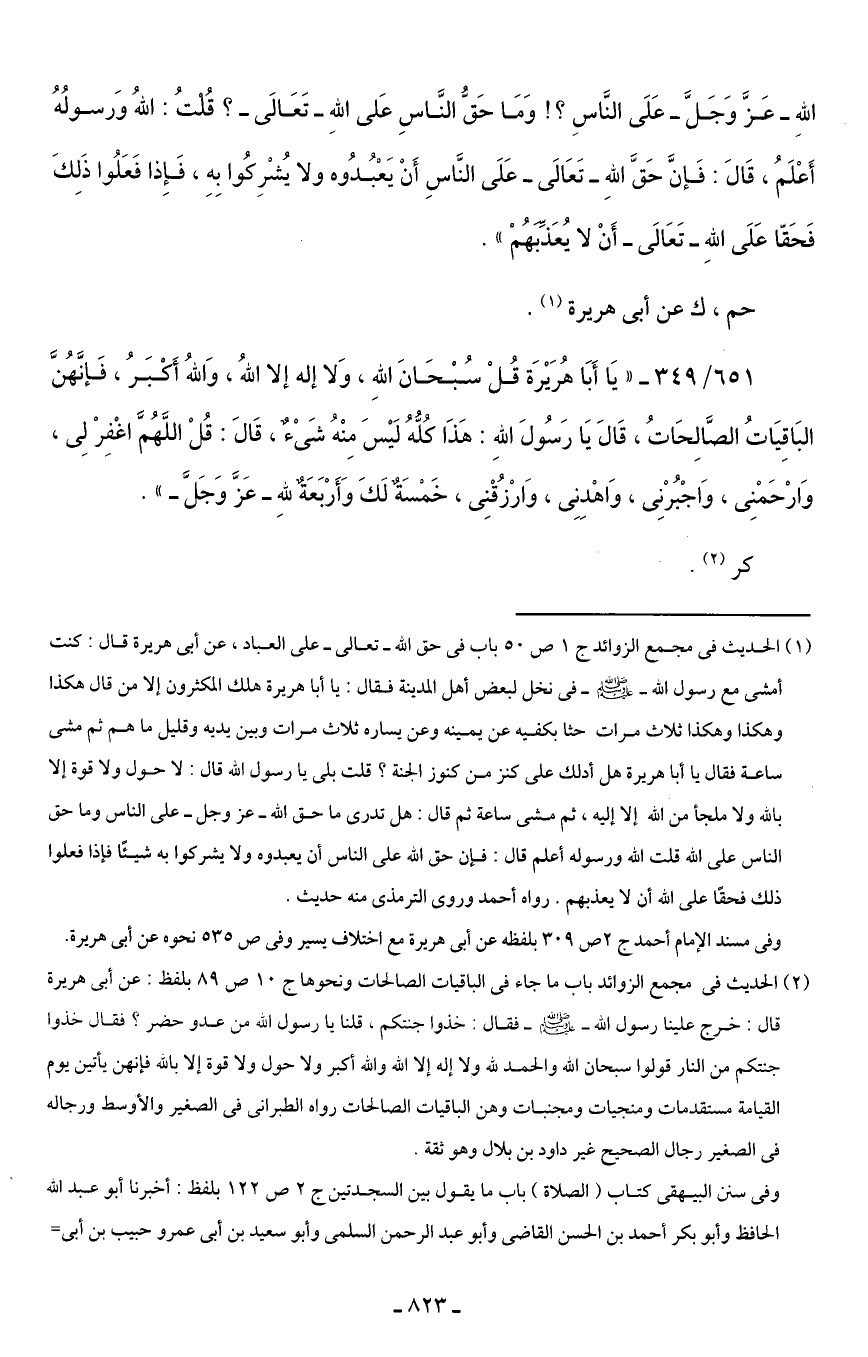 اللهِ ـ عَـزَّ وَجَـلَّ ـ عَلَى النَّاسِ ؟! وَمَـا حَقُّ النَّـاسِ عَلى اللهِ ـ تَعَـالَى ـ ؟ قُلْتُ : اللهُ وَرَسـولُهُ
أَعْلَمُ ، قَالَ : فَـإِنَّ حَقَّ اللهِ ـ تَعَالَى ـ عَلَى النَّاسِ أَنْ يَعْبُـدُوه ولا يُشْرِكُوا بِهِ ، فَـإِذا فَعَلُوا ذَلِكَ
فَحَقّا عَلَى اللهِ ـ تَعَالَى ـ أَنْ لا يُعَذِّبَهُمْ » .
حم ، ك عن أبى هريرة (١) .
٣٤٩/٦٥١ ـ « يَا أَبَا هُرَيْرَةَ قُـلْ سُبْـحَـانَ اللهِ ، وَلَا إله إلا اللهُ ، وَاللهُ أَكْـبَـرُ ، فَـإِنَّهُنَّ
البَاقِيَاتُ الصَّالِحَاتُ ، قَالَ يَا رَسُولَ اللهِ : هَذَا كُلُّهُ لَيْسَ مِنْهُ شَىْءٌ ، قَالَ : قُلْ اللَّهُمَّ اغْفِرْ لِى ،
وَارْحَمْنِى ، وَاجْبُرْنِى ، وَاهْدِنِى ، وَارْزُقْنِى ، خَمْسَةٌ لَكَ وَأَرْبَعَةٌ لِلهِ ـ عَزَّ وَجَلَّ ـ » .
كر (٢) .
(١) الحـديث فى مجـمع الزوائد ج ١ ص ٥٠ باب فى حق الله ـ تعـالى ـ على العبـاد ، عن أبى هريرة قـال : كنت
أمشى مع رسول الله ـ ﷺ ـ فى نخل لبعض أهل المدينة فـقال : يا أبا هريرة هلك المكثرون إلا من قال هكذا
وهكذا وهكذا ثلاث مـرات حثا بكفـيه عن يمـينه وعن يساره ثلاث مـرات وبين يديه وقليل ما هـم ثم مشى
ساعـة فقال يا أبا هريرة هل أدلك على كنز مـن كنوز الجنة ؟ قلت بلى يا رسول الله قال : لا حـول ولا قوة إلا
بالله ولا ملجأ من الله إلا إليه ، ثم مـشى ساعة ثم قال : هل تدرى ما حـق الله ـ عز وجل ـ على الناس وما حق
الناس على الله قلت الله ورسوله أعلم قال : فـإن حق الله على الناس أن يعبدوه ولا يشركوا به شيـئًا فإذا فعلوا
ذلك فحقًا على الله أن لا يعذبهم . رواه أحمد وروى الترمذى منه حديث .
وفى مسند الإمام أحمد ج ٢ص ٣٠٩ بلفظه عن أبى هريرة مع اختلاف يسير وفى ص ٥٣٥ نحوه عن أبى هريرة.
(٢) الحديث فى مجمع الزوائد باب ما جاء فى الباقيات الصالحات ونحوها ج ١٠ ص ٨٩ بلفظ : عن أبى هريرة
قال : خـرج علينا رسول الله ـ ﷺ ـ فقـال : خذوا جنتكم ، قلنا يا رسول الله من عـدو حضر ؟ فقـال خذوا
جنتكم من النار قولوا سبحان الله والحمـد لله ولا إله إلا الله والله أكبر ولا حول ولا قوة إلا بالله فإنهن يأتين يوم
القيامة مستقدمات ومنجيات ومجنبـات وهن الباقيات الصالحات رواه الطبرانى فى الصغير والأوسط ورجاله
فى الصغير رجال الصحيح غير داود بن بلال وهو ثقة .
وفى سنن البيـهقى كتـاب ( الصلاة ) باب ما يقـول بين السجـدتين ج ٢ ص ١٢٢ بلفظ : أخبرنا أبو عبـد الله
الحافظ وأبو بكر أحمد بن الحسن القاضى وأبو عبد الرحمن السلمى وأبو سعيد بن أبى عمرو حبيب بن أبى=
ـ ٨٢٣ ـ